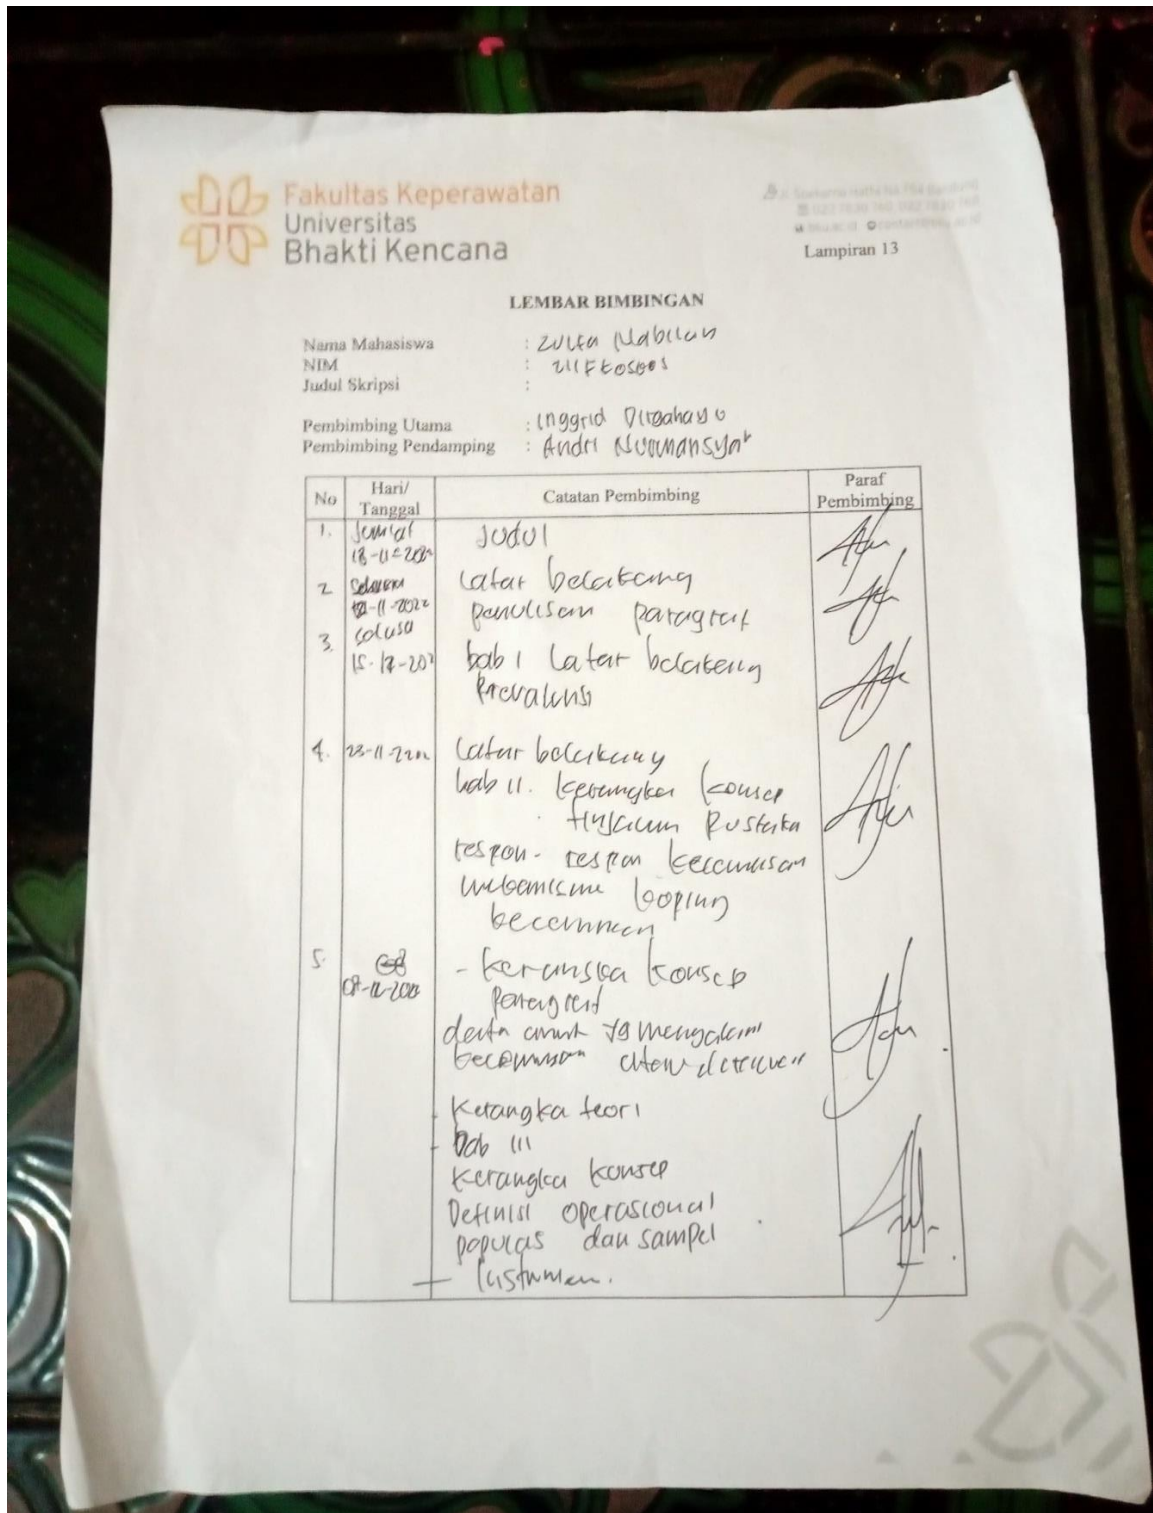 Fakultas Keperawatan
Universitas
Bhakti Kencana
Lampiran 13
LEMBAR BIMBINGAN
Nama Mahasiswa : Zulfa Nabilah
NIM :
Judul Skripsi :
Pembimbing Utama : Inggrid Dirgahayu
Pembimbing Pendamping : Andri Nurmansyah
No Hari/ Tanggal Catatan Pembimbing Paraf Pembimbing
1. Jum'at Judul
2. latar belakang
-11-2022 penulisan paragraf
3. selasa
bab 1 latar belakang
Prevalensi
4. 23-11- latar belakang
bab II. kerangka konsep
tinjauan Pustaka
respon-respon kecemasan
mekanisme koping
kecemasan
5.
- kerangka konsep
Paragraf
data anak yg mengalami
kecemasan
Kerangka teori
- bab III
Kerangka konsep
Definisi operasional
populas dan sampel
- Instrumen.